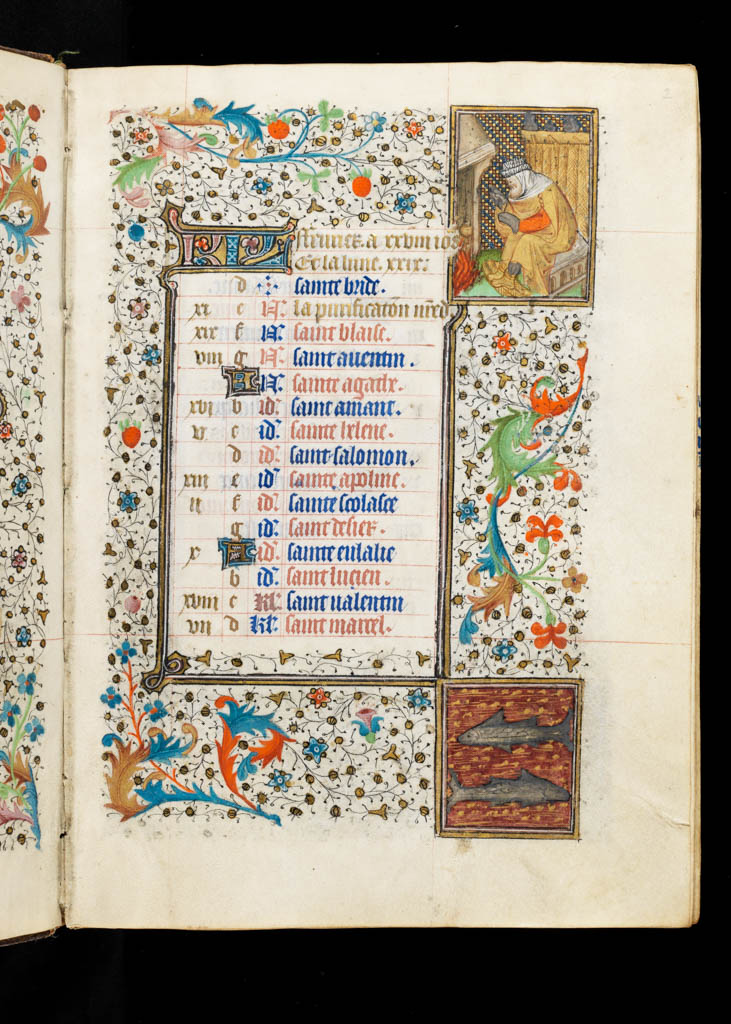 2
KL feurier a xxviii iors
Et la lune. xxix.
d saincte bride.
xi e N. la purificatõn nred
xix f N. saint blaise.
viii g N. saint auentin.
A N. saincte agathe.
xvi b id. saint amant.
v c id. saincte helene.
d id. saint salomon.
xiii e id. saincte apoline.
ii f id. saincte scolasce
g id. saint desier.
x A id. saincte eulalie
b id. saint lucien.
xviii c kl. saint ualentin
vii d kl. saint marcel.